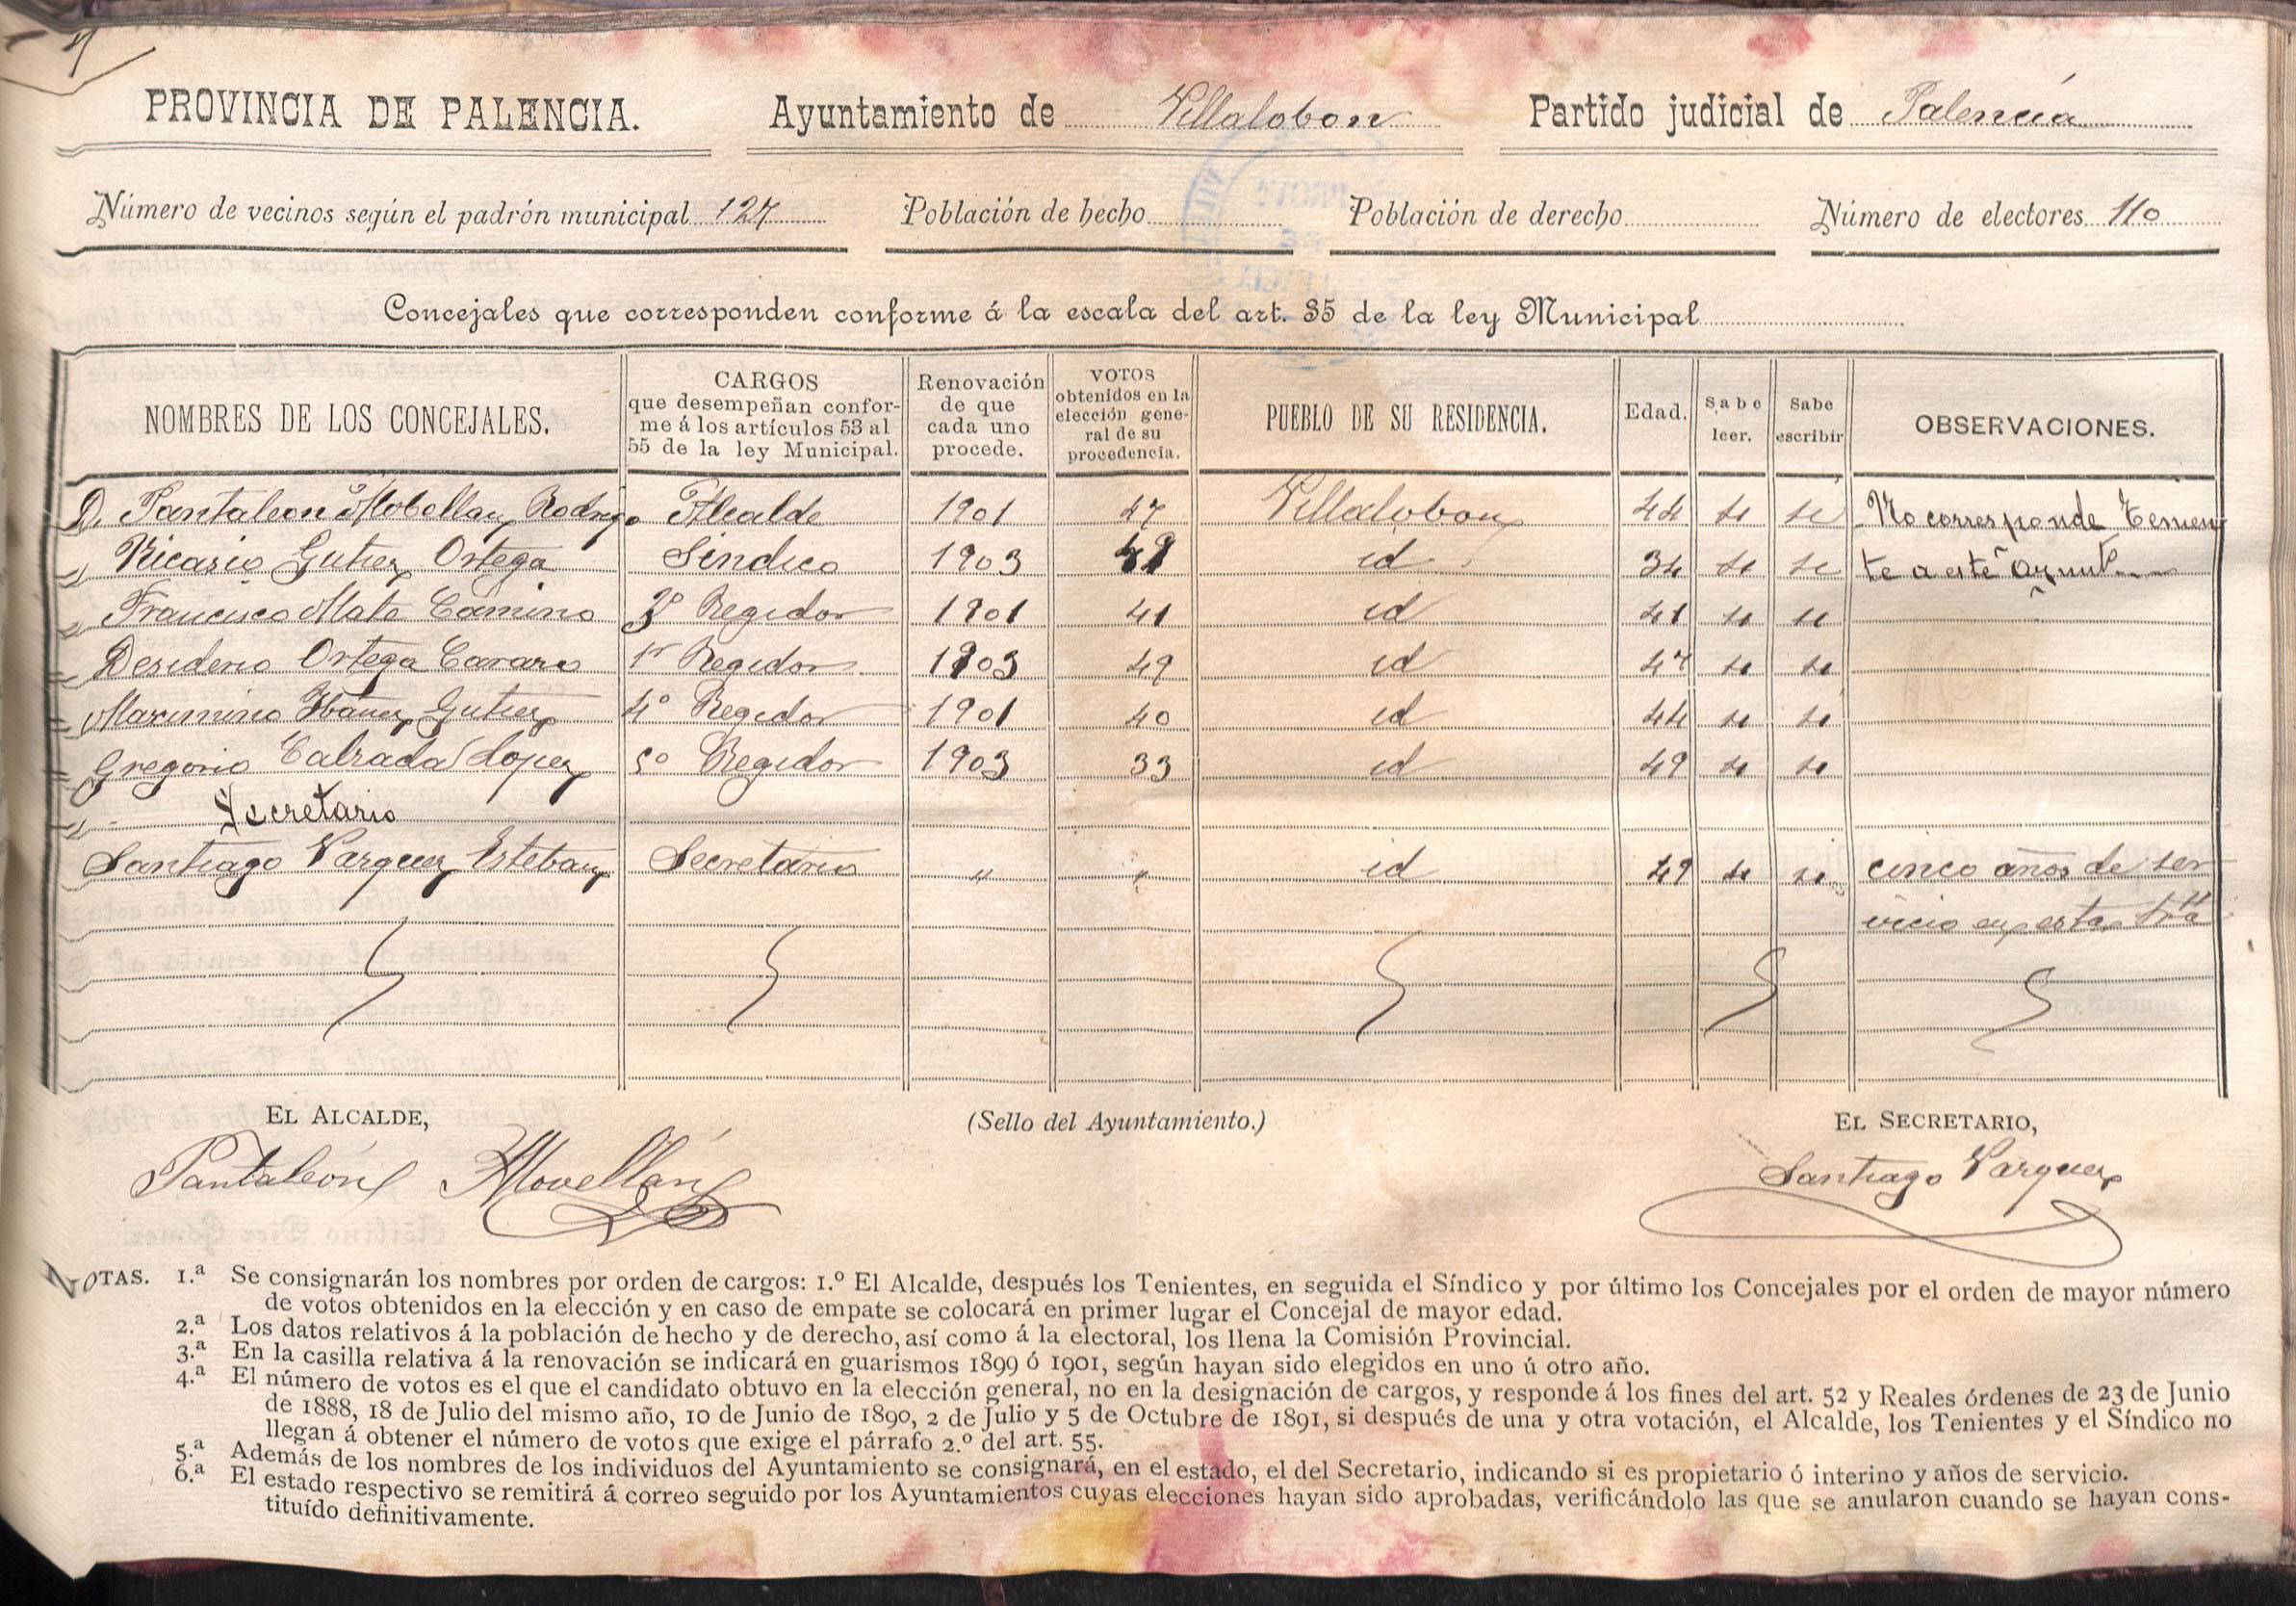 PROVINCIA DE PALENCIA. Ayuntamiento de Villalobon Partido judicial de Palencia
Número de vecinos según el padrón municipal 127 Población de hecho Población de derecho Número de electores 110
Concejales que corresponden conforme á la escala del art. 35 de la ley Municipal
NOMBRES DE LOS CONCEJALES. CARGOS que desempeñan conforme á los artículos 53 al 55 de la ley Municipal. Renovación de que cada uno procede. VOTOS obtenidos en la elección general de su procedencia. PUEBLO DE SU RESIDENCIA. Edad. Sabe leer. Sabe escribir OBSERVACIONES.
D. Pantaleon Mobellan Rodrigo Alcalde 1901 47 Villalobon 44 si si No corresponde Tenien
" Nicasio Gutiez Ortega Sindico 1903 id 34 si si te a este Ayuntº
" Francisco Mate Camino 3º Regidor 1901 41 id 41 si si
" Desiderio Ortega 1r Regidor 1903 49 id 47 si si
" Maximino Ibañez Gutiez 4º Regidor 1901 40 id 44 si si
" Gregorio Calzada Lopez 5º Regidor 1903 33 id 49 si si
" Secretario
Santiago Vazquez Esteban Secretario " " id 49 si si cinco años de ser
vicio en esta
EL ALCALDE, (Sello del Ayuntamiento.) EL SECRETARIO,
Pantaleón Movellán Santiago Vazquez
NOTAS. 1.ª Se consignarán los nombres por orden de cargos: 1.º El Alcalde, después los Tenientes, en seguida el Síndico y por último los Concejales por el orden de mayor número
de votos obtenidos en la elección y en caso de empate se colocará en primer lugar el Concejal de mayor edad.
2.ª Los datos relativos á la población de hecho y de derecho, así como á la electoral, los llena la Comisión Provincial.
3.ª En la casilla relativa á la renovación se indicará en guarismos 1899 ó 1901, según hayan sido elegidos en uno ú otro año.
4.ª El número de votos es el que el candidato obtuvo en la elección general, no en la designación de cargos, y responde á los fines del art. 52 y Reales órdenes de 23 de Junio
de 1888, 18 de Julio del mismo año, 10 de Junio de 1890, 2 de Julio y 5 de Octubre de 1891, si después de una y otra votación, el Alcalde, los Tenientes y el Síndico no
llegan á obtener el número de votos que exige el párrafo 2.º del art. 55.
5.ª Además de los nombres de los individuos del Ayuntamiento se consignará, en el estado, el del Secretario, indicando si es propietario ó interino y años de servicio.
6.ª El estado respectivo se remitirá á correo seguido por los Ayuntamientos cuyas elecciones hayan sido aprobadas, verificándolo las que se anularon cuando se hayan cons-
tituído definitivamente.